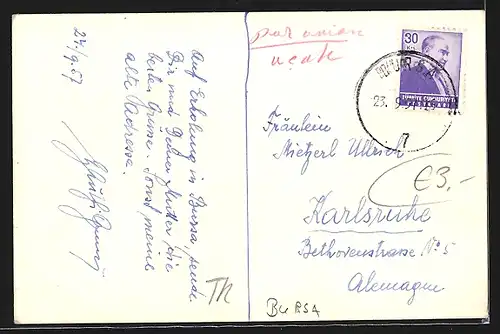 24/9.57
Auf Erholung in Bursa, sende
Dir und Deine Mutter die
besten Grüsse. Sonst meine
alte Adresse.
par avion
uçak
30
TÜRKİYE CUMHURİYETİ
23. 9.
7
Fräulein
Mietzerl Ullrich
€3,-
Karlsruhe
Bethovenstrasse No 5
Alemagne
TR
BURSA